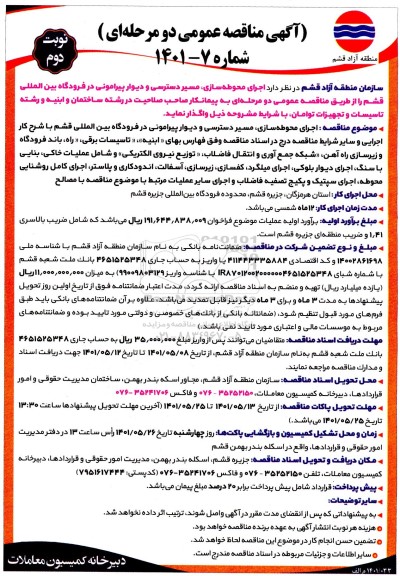 (آگهی مناقصه عمومی دو مرحله‌ای)
شماره ۷-۱۴۰۱
نوبت دوم
منطقه آزاد قشم
سازمان منطقه آزاد قشم در نظر دارد اجرای محوطه‌سازی، مسیر دسترسی و دیوار پیرامونی در فرودگاه بین المللی
قشم را از طریق مناقصه عمومی دو مرحله‌ای به پیمانکار صاحب صلاحیت در رشته ساختمان و ابنیه و رشته
تاسیسات و تجهیزات توامان، با شرایط مشروحه ذیل واگذار نماید.
موضوع مناقصه: اجرای محوطه‌سازی، مسیر دسترسی و دیوار پیرامونی در فرودگاه بین المللی قشم با شرح کار
اجرایی و سایر شرایط مناقصه درج در اسناد مناقصه وفق فهارس بهای «ابنیه»، «تاسیسات برقی»، «راه، باند فرودگاه
و زیرسازی راه آهن»، «شبکه جمع آوری و انتقال فاضلاب»، «توزیع نیروی الکتریکی» و شامل عملیات خاکی، بنایی
با سنگ، اجرای دیوار بلوکی، اجرای میلگرد، کفسازی، زیرسازی، آسفالت، اندودکاری و پلاستر، اجرای کامل روشنایی
محوطه، اجرای سپتیک و پکیج تصفیه فاضلاب و اجرای سایر عملیات مرتبط با موضوع مناقصه با مصالح
محل اجرای کار: استان هرمزگان، جزیره قشم، محدوده فرودگاه بین‌المللی جزیره قشم
مدت زمان اجرای کار: ۱۲ ماه شمسی می‌باشد.
مبلغ برآورد اولیه: برآورد اولیه عملیات موضوع فراخوان ۱۹۱,۶۴۴,۸۳۸,۰۰۹ ریال می‌باشد که شامل ضریب بالاسری
۱,۴۱ و ضریب منطقه‌ای جزیره قشم است.
مبلغ و نوع تضمین شرکت در مناقصه: ضمانت‌نامه بانکی به نام سازمان منطقه آزاد قشم با شناسه ملی
۱۴۰۰۲۸۶۱۶۹۸ و کد اقتصادی ۴۱۱۴۴۳۳۳۵۸۸۴ یا واریز به حساب جاری ۴۶۵۱۵۲۵۳۴۸ بانک ملت شعبه قشم
(یازده میلیارد ریال) تهیه و منضم به اسناد مناقصه ارائه گردد، مدت اعتبار ضمانتنامه فوق از تاریخ اولین روز تحویل
پیشنهادها به مدت ۳ ماه و برای ۳ ماه دیگر نیز قابل تمدید می‌باشد، علاوه بر آن ضمانتنامه‌های بانکی باید طبق
فرم‌های مورد قبول تنظیم شود. (ضمانتنامه بانکی از بانک‌های خصوصی و دولتی مورد تایید بوده و ضمانتنامه‌های
مربوط به موسسات مالی و اعتباری مورد تایید نمی باشد.)
مهلت دریافت اسناد مناقصه: متقاضیان می‌توانند پس از واریز مبلغ ۳۵,۰۰۰,۰۰۰ ریال به حساب جاری ۴۶۵۱۵۲۵۳۴۸
بانک ملت شعبه قشم به‌نام سازمان منطقه آزاد قشم، از تاریخ ۱۴۰۱/۰۵/۰۸ تا تاریخ ۱۴۰۱/۰۵/۱۲ جهت دریافت اسناد
و مدارک مناقصه مراجعه نمایند.
محل تحویل اسناد مناقصه: سازمان منطقه آزاد قشم، مجاور اسکه بندر بهمن، ساختمان مدیریت حقوقی و امور
قراردادها، دبیرخانه کمیسیون معاملات، ۳۵۲۵۲۱۵۰-۰۷۶ و فاکس ۳۵۲۴۱۷۰۶-۰۷۶
مهلت تحویل پاکات مناقصه: از تاریخ ۱۴۰۱/۰۵/۱۳ تا ۱۴۰۱/۰۵/۲۵ (آخرین مهلت تحویل پیشنهادها ساعت ۱۳:۳۰
تاریخ ۱۴۰۱/۰۵/۲۵ می‌باشد.)
زمان و محل تشکیل کمیسیون و بازگشایی پاکت‌ها: روز چهارشنبه تاریخ ۱۴۰۱/۰۵/۲۶ رأس ساعت ۱۳ در دفتر مدیریت
امور حقوقی و قراردادها، واقع در اسکله بندر بهمن قشم
مکان دریافت و تحویل اسناد مناقصه: جزیره قشم، اسکله بندر بهمن، مدیریت امور حقوقی و قراردادها، دبیرخانه
کمیسیون معاملات، تلفن ۳۵۲۵۲۱۵۰-۰۷۶ و فاکس ۳۵۲۴۱۷۰۶-۰۷۶ (کدپستی: ۷۹۵۱۶۱۷۴۴۴)
پیش پرداخت: قرارداد شامل پیش پرداخت برابر ۲۰ درصد مبلغ پیمان می‌باشد.
سایر توضیحات:
به پیشنهاداتی که پس از انقضای مدت مقرر در آگهی واصل شوند، ترتیب اثر داده نخواهد شد.
هزینه هر نوبت انتشار آگهی به عهده برنده مناقصه خواهد بود.
تضمین حسن انجام کار در موضوع این مناقصه لحاظ خواهد شد.
سایر اطلاعات و جزئیات مربوطه در اسناد مناقصه مندرج است.
دبیرخانه کمیسیون معاملات